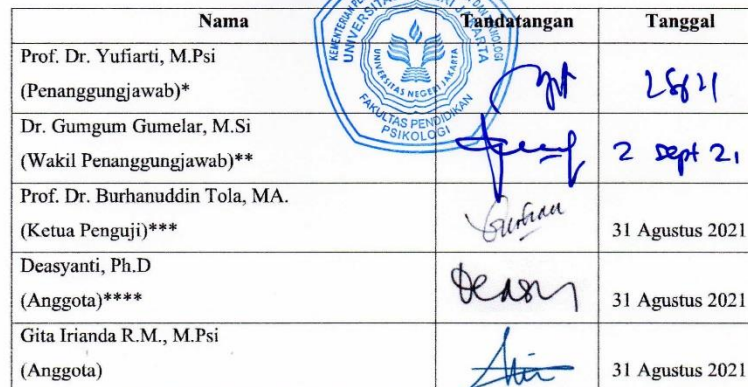 Nama Tandatangan Tanggal
Prof. Dr. Yufiarti, M.Psi
(Penanggungjawab)*
Dr. Gumgum Gumelar, M.Si
(Wakil Penanggungjawab)** 2 Sept 21
Prof. Dr. Burhanuddin Tola, MA.
(Ketua Penguji)*** 31 Agustus 2021
Deasyanti, Ph.D
(Anggota)**** 31 Agustus 2021
Gita Irianda R.M., M.Psi
(Anggota) 31 Agustus 2021
UNIVERSITAS NEGERI JAKARTA
FAKULTAS PENDIDIKAN
PSIKOLOGI